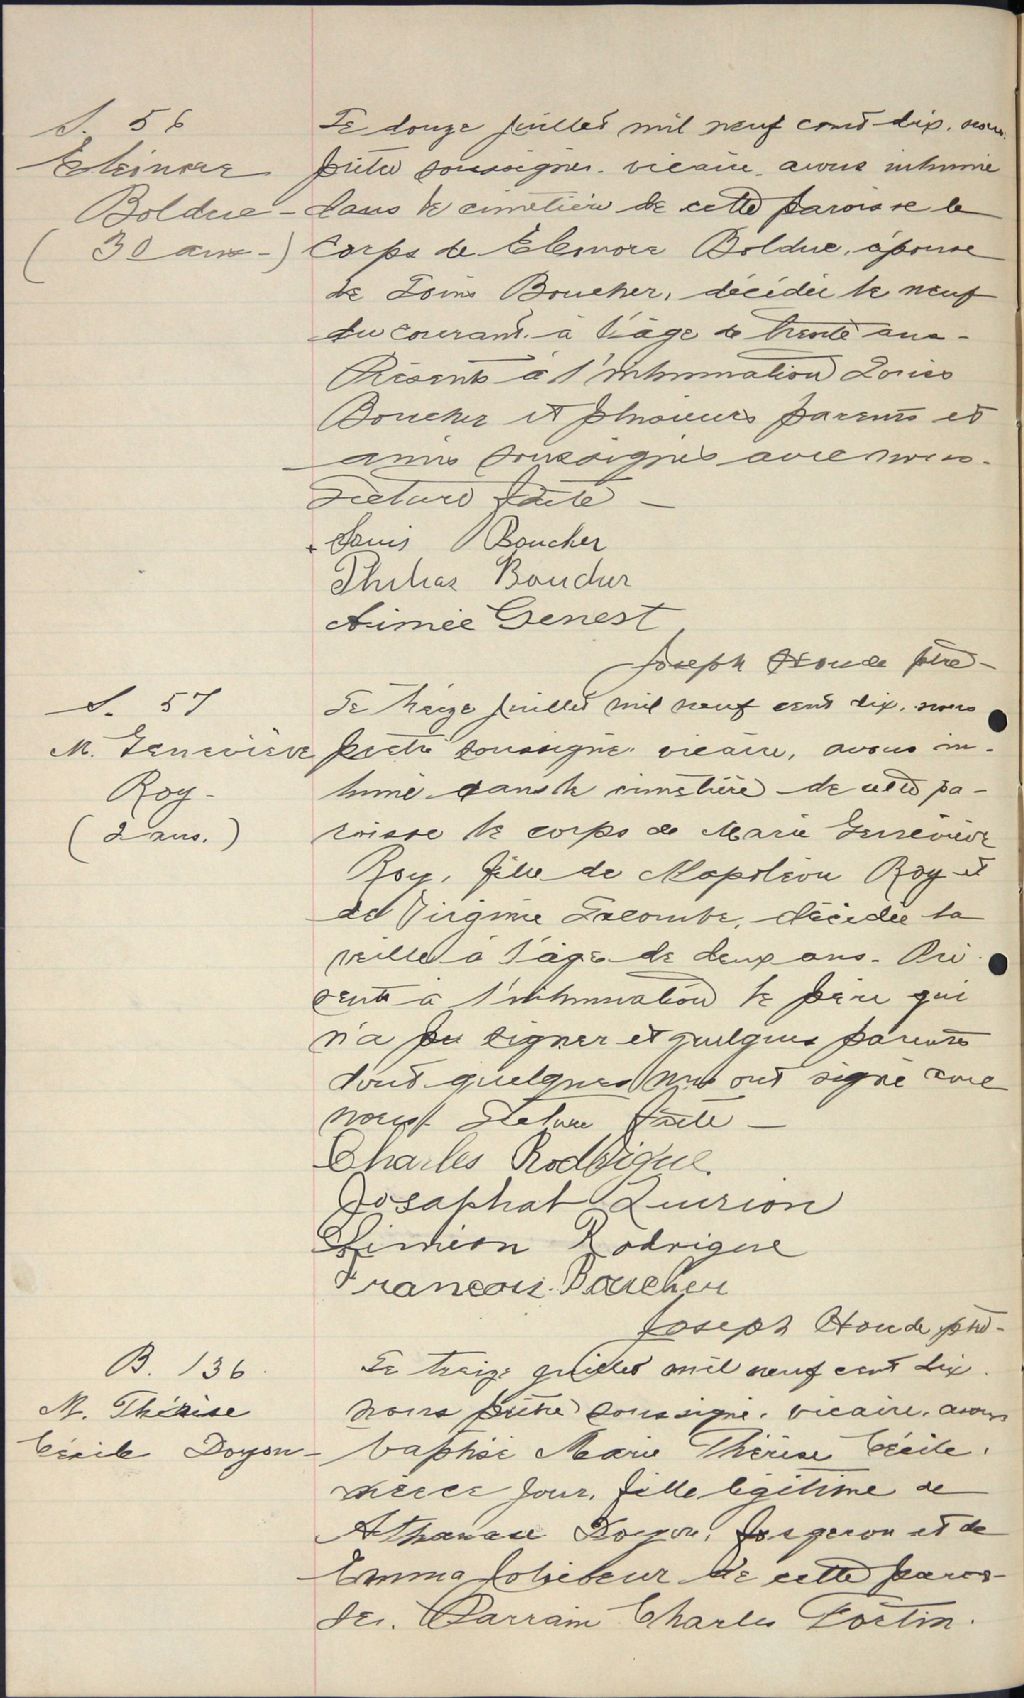 S. 56
Eléonore
Bolduc -
(30 ans -)
Le douze juillet mil neuf cent dix, nous
prêtre soussigné, vicaire, avons inhumé
dans le cimetière de cette paroisse le
corps de Eléonore Bolduc, épouse
de Louis Boucher, décédée le neuf
du courant à l'âge de trente ans -
Présents à l'inhumation Louis
Boucher et plusieurs parents et
amis soussignés avec nous.
Lecture faite -
+ Louis Boucher
Boucher
Aimée Genest
Joseph Houde ptre -
S. 57
M. Geneviève
Roy -
(2 ans.)
Le treize juillet mil neuf cent dix, nous
prêtre soussigné, vicaire, avons in-
humé dans le cimetière de cette pa-
roisse le corps de Marie Geneviève
Roy, fille de Napoléon Roy et
de Virginie Lacombe, décédée la
veille à l'âge de deux ans. Pré
sents à l'inhumation le père qui
n'a pu signer et quelques parents
dont quelques uns ont signé avec
nous. Lecture faite -
Charles Rodrigue.
Josaphat Quirion
Siméon Rodrigue
François Boucher
Joseph Houde ptre -
B. 136
M. Thérèse
Cécile Doyon -
Le treize juillet mil neuf cent dix
nous prêtre soussigné, vicaire, avons
baptisé Marie Thérèse Cécile,
née ce jour, fille légitime de
Athanase Doyon, forgeron et de
Emma Jolicoeur de cette parois-
se. Parrain Charles Fortin.